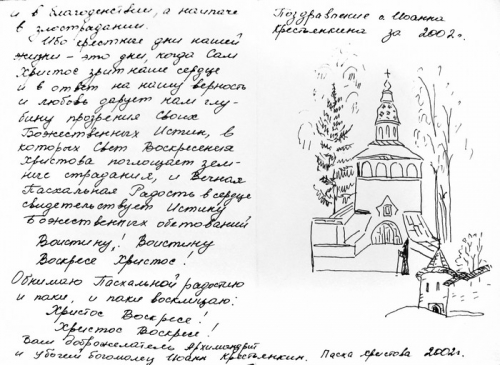 и в благоденствии, а наипаче
в злострадании.
Ибо крестные дни нашей
жизни – это дни, когда Сам
Христос зрит наше сердце
и в ответ на нашу верность
и любовь дарует нам глу-
бину прозрения Своих
Божественных Истин, в
которых Свет Воскресения
Христова поглощает зем-
ные страдания, и Вечная
Пасхальная Радость в сердце
свидетельствует Истину
Божественных обетований
Воистину! Воистину
Воскресе Христос!
Обнимаю Пасхальной радостию
и паки, и паки восклицаю:
Христос Воскресе!
Христос Воскресе!
Ваш доброжелатель Архимандрит
и убогий богомолец Иоанн Крестьянкин. Пасха Христова 2002г.
Поздравление о. Иоанна
Крестьянкина за 2002г.